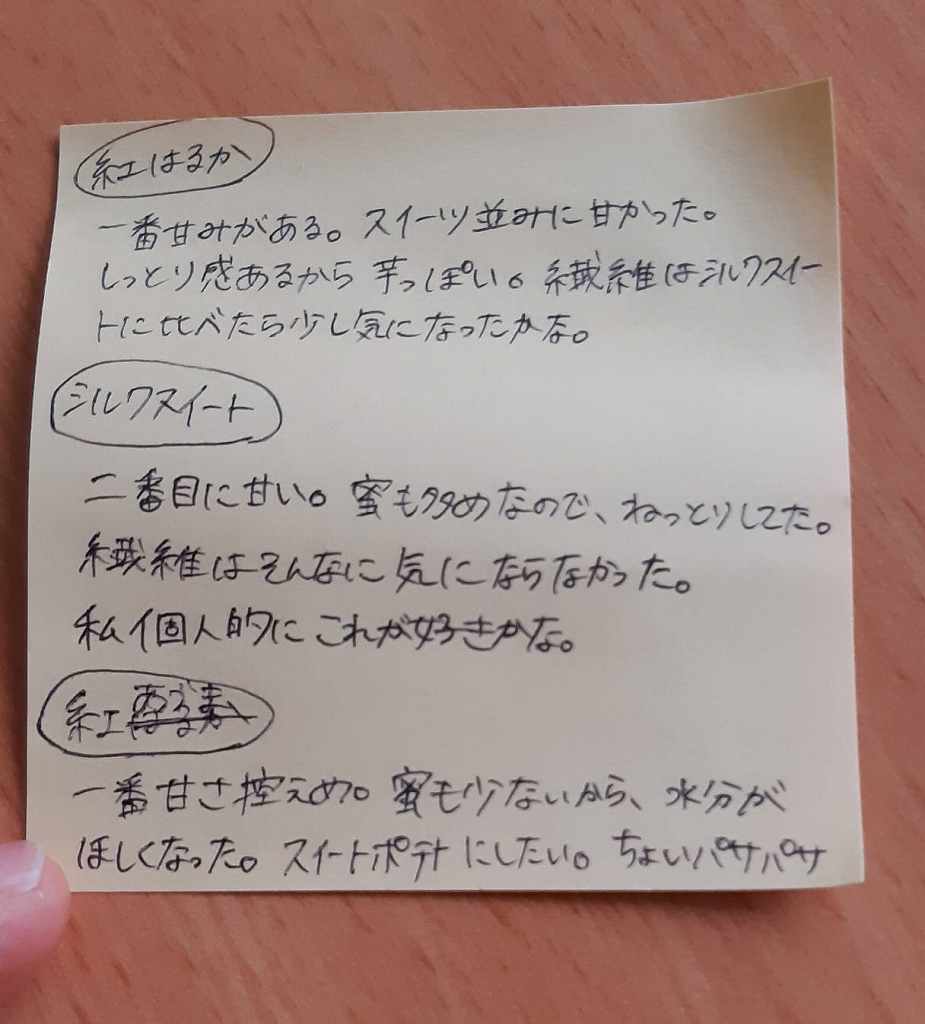 紅はるか
一番甘みがある。スイーツ並みに甘かった。
しっとり感あるから芋っぽい。繊維はシルクスイー
トに比べたら少し気になったかな。
シルクスイート
二番目に甘い。蜜も多めなので、ねっとりしてた。
繊維はそんなに気にならなかった。
私個人的にこれが好きかな。
紅あずま
一番甘さ控えめ。蜜も少ないから、水分が
ほしくなった。スイートポテトにしたい。ちょいパサパサ